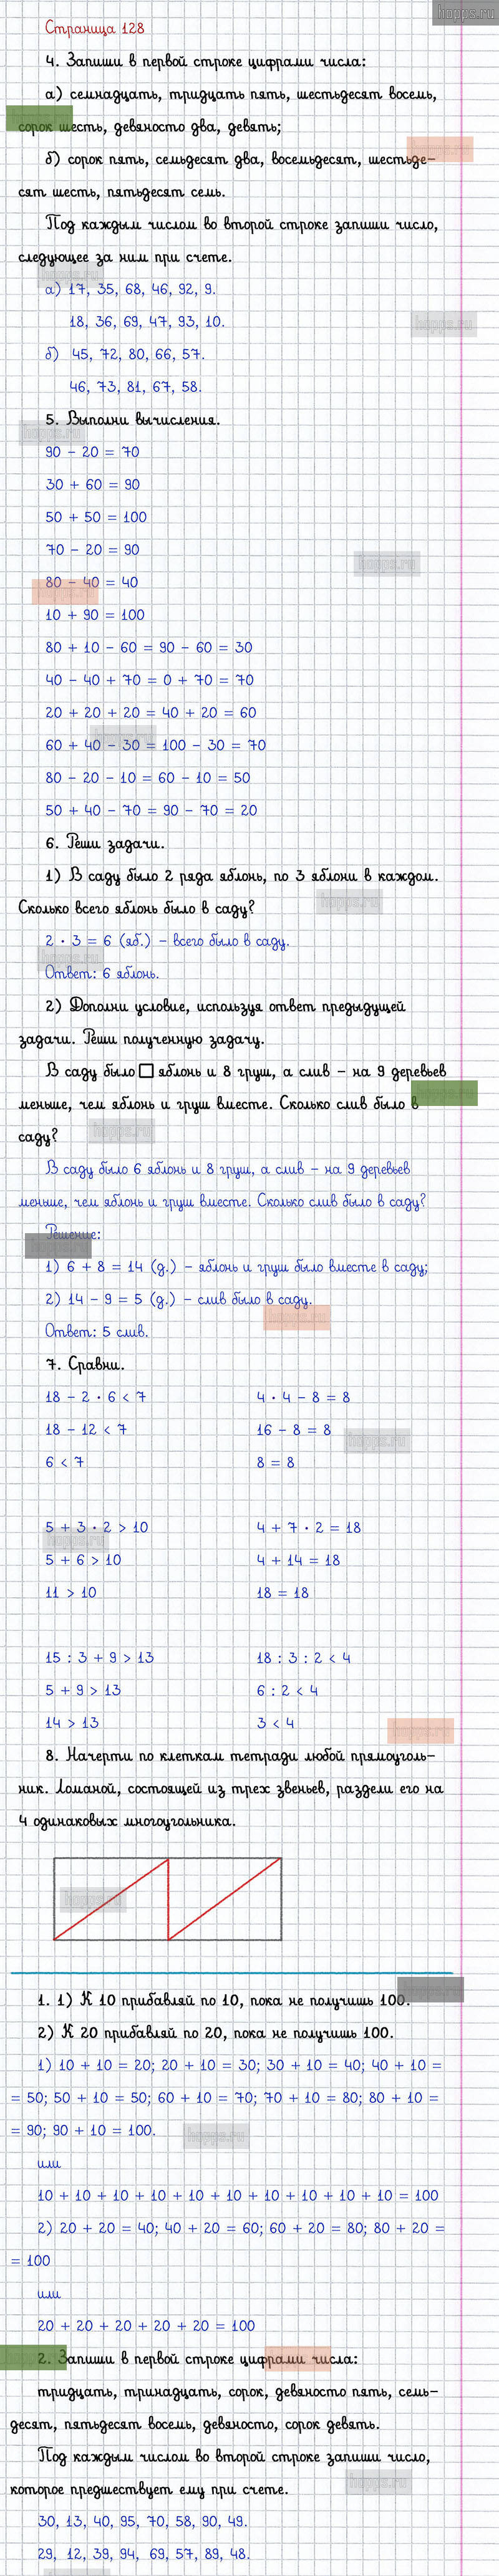 hopps.ru
Страница 128
4. Запиши в первой строке цифрами числа:
а) семнадцать, тридцать пять, шестьдесят восемь,
сорок шесть, девяносто два, девять;
б) сорок пять, семьдесят два, восемьдесят, шестьде-
сят шесть, пятьдесят семь.
Под каждым числом во второй строке запиши число,
следующее за ним при счете.
а) 17, 35, 68, 46, 92, 9.
18, 36, 69, 47, 93, 10.
б) 45, 72, 80, 66, 57.
46, 73, 81, 67, 58.
5. Выполни вычисления.
90 - 20 = 70
30 + 60 = 90
50 + 50 = 100
70 - 20 = 90
80 - 40 = 40
10 + 90 = 100
80 + 10 - 60 = 90 - 60 = 30
40 - 40 + 70 = 0 + 70 = 70
20 + 20 + 20 = 40 + 20 = 60
60 + 40 - 30 = 100 - 30 = 70
80 - 20 - 10 = 60 - 10 = 50
50 + 40 - 70 = 90 - 70 = 20
6. Реши задачи.
1) В саду было 2 ряда яблонь, по 3 яблони в каждом.
Сколько всего яблонь было в саду?
2 · 3 = 6 (яб.) - всего было в саду.
Ответ: 6 яблонь.
2) Дополни условие, используя ответ предыдущей
задачи. Реши полученную задачу.
В саду было □ яблонь и 8 груш, а слив - на 9 деревьев
меньше, чем яблонь и груш вместе. Сколько слив было в
саду?
В саду было 6 яблонь и 8 груш, а слив - на 9 деревьев
меньше, чем яблонь и груш вместе. Сколько слив было в саду?
Решение:
1) 6 + 8 = 14 (д.) - яблонь и груш было вместе в саду;
2) 14 - 9 = 5 (д.) - слив было в саду.
Ответ: 5 слив.
7. Сравни.
18 - 2 · 6 < 7 4 · 4 - 8 = 8
18 - 12 < 7 16 - 8 = 8
6 < 7 8 = 8
5 + 3 · 2 > 10 4 + 7 · 2 = 18
5 + 6 > 10 4 + 14 = 18
11 > 10 18 = 18
15 : 3 + 9 > 13 18 : 3 : 2 < 4
5 + 9 > 13 6 : 2 < 4
14 > 13 3 < 4
8. Начерти по клеткам тетради любой прямоуголь-
ник. Ломаной, состоящей из трех звеньев, раздели его на
4 одинаковых многоугольника.
1. 1) К 10 прибавляй по 10, пока не получишь 100.
2) К 20 прибавляй по 20, пока не получишь 100.
1) 10 + 10 = 20; 20 + 10 = 30; 30 + 10 = 40; 40 + 10 =
= 50; 50 + 10 = 50; 60 + 10 = 70; 70 + 10 = 80; 80 + 10 =
= 90; 90 + 10 = 100.
или
10 + 10 + 10 + 10 + 10 + 10 + 10 + 10 + 10 + 10 = 100
2) 20 + 20 = 40; 40 + 20 = 60; 60 + 20 = 80; 80 + 20 =
= 100
или
20 + 20 + 20 + 20 + 20 = 100
2. Запиши в первой строке цифрами числа:
тридцать, тринадцать, сорок, девяносто пять, семь-
десят, пятьдесят восемь, девяносто, сорок девять.
Под каждым числом во второй строке запиши число,
которое предшествует ему при счете.
30, 13, 40, 95, 70, 58, 90, 49.
29, 12, 39, 94, 69, 57, 89, 48.